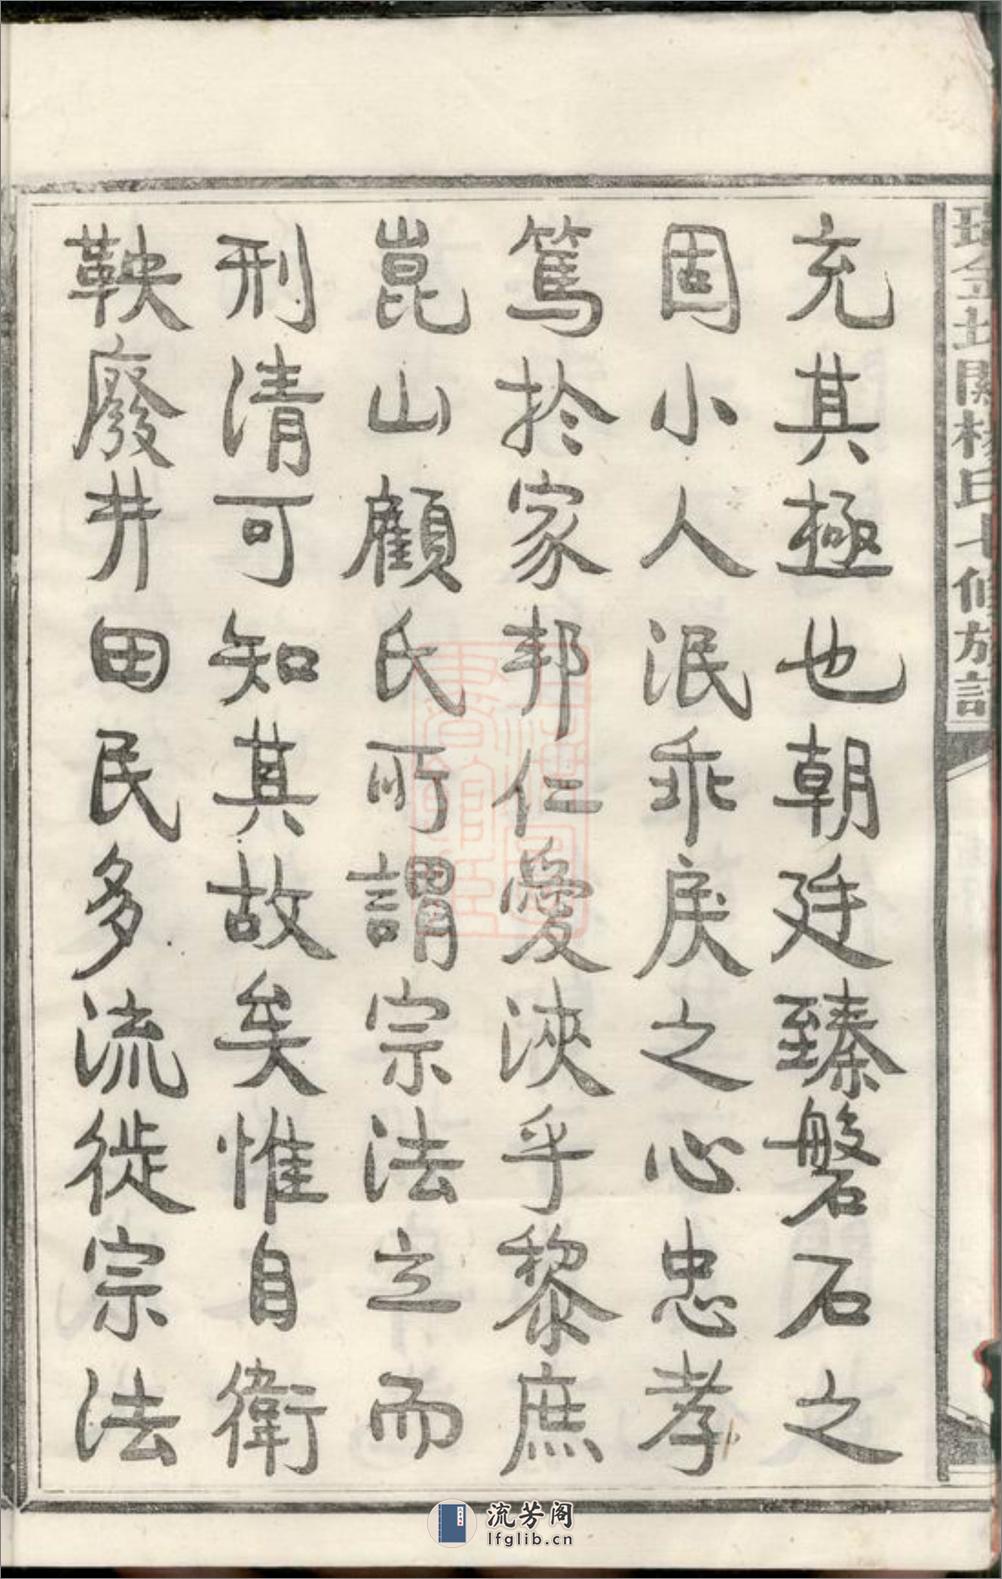 充其極也朝廷臻磐石之
固小人泯乖戾之心忠孝
篤於家邦仁愛浹乎黎庶
崑山顧氏所謂宗法立而
刑清可知其故矣惟自衛
鞅廢井田民多流徙宗法
金 關楊氏七修族譜
流芳阁
lfglib.cn